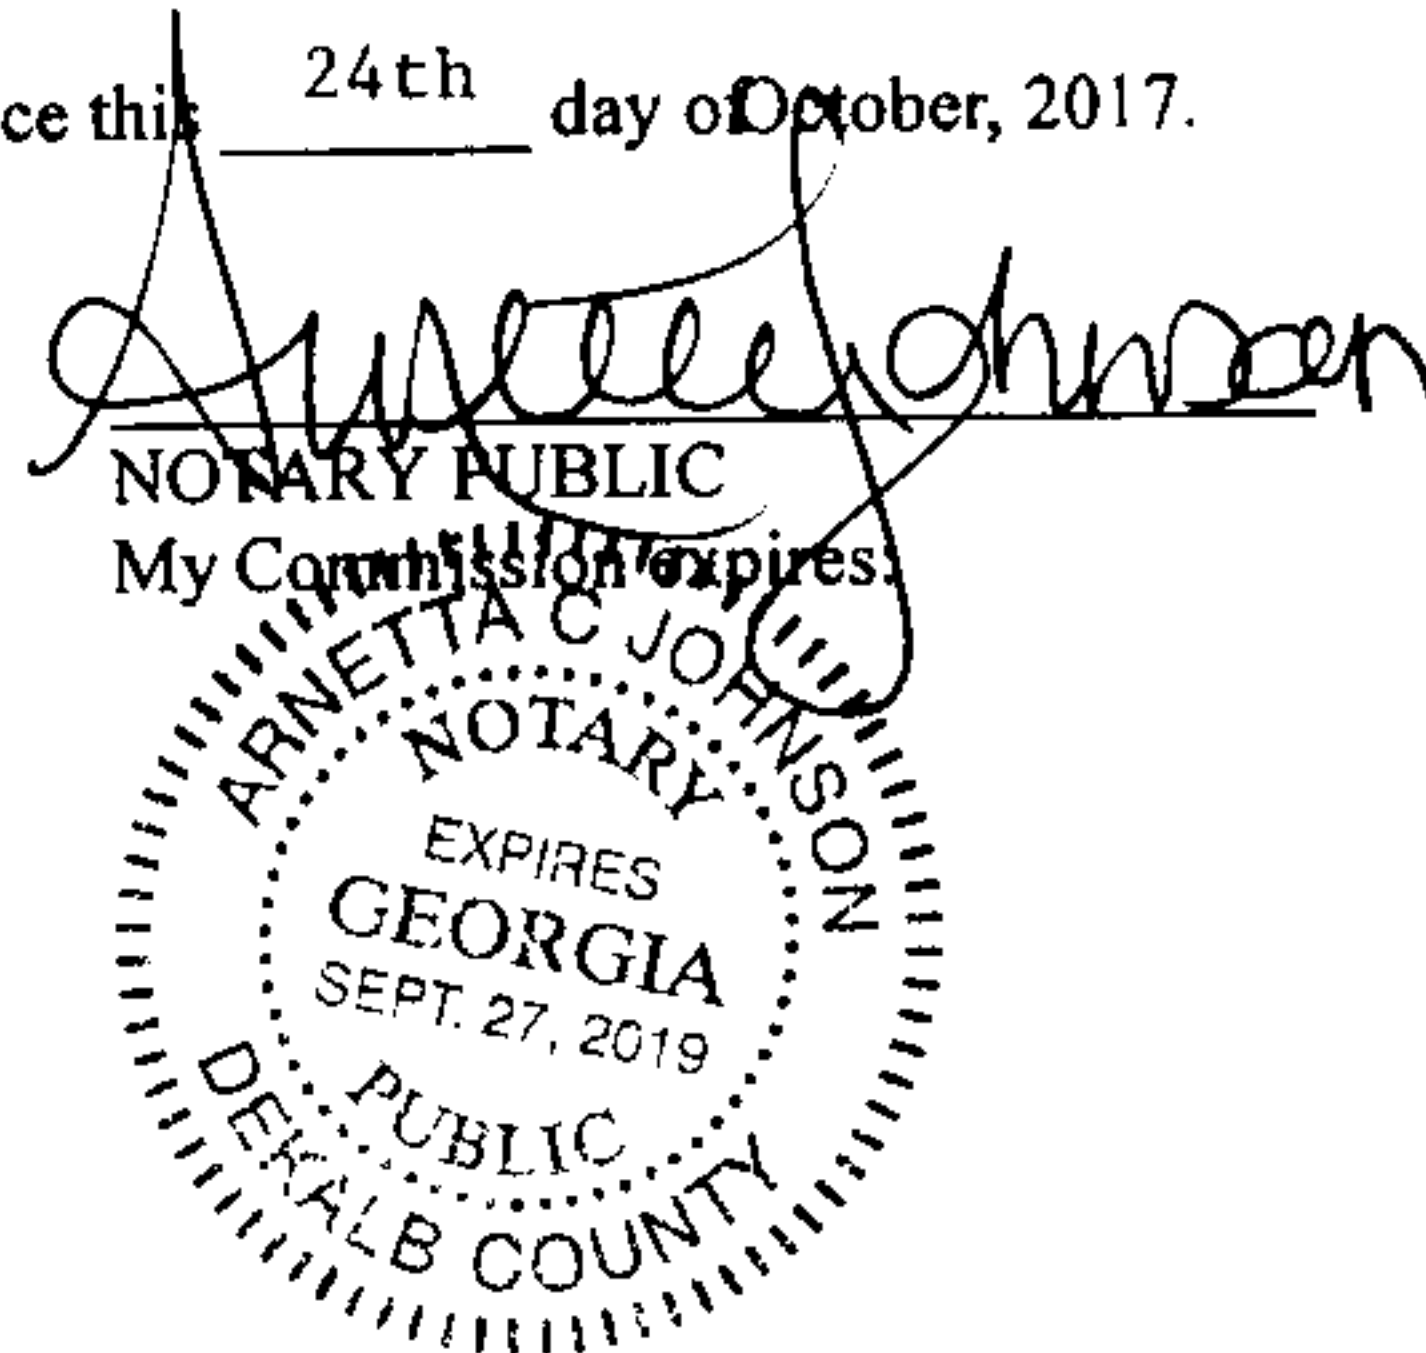 ce this 24th day of October, 2017.
NOTARY PUBLIC
My Commission expires:
ARNETTA C JOHNSON
NOTARY
EXPIRES
GEORGIA
SEPT. 27, 2019
PUBLIC
DEKALB COUNTY